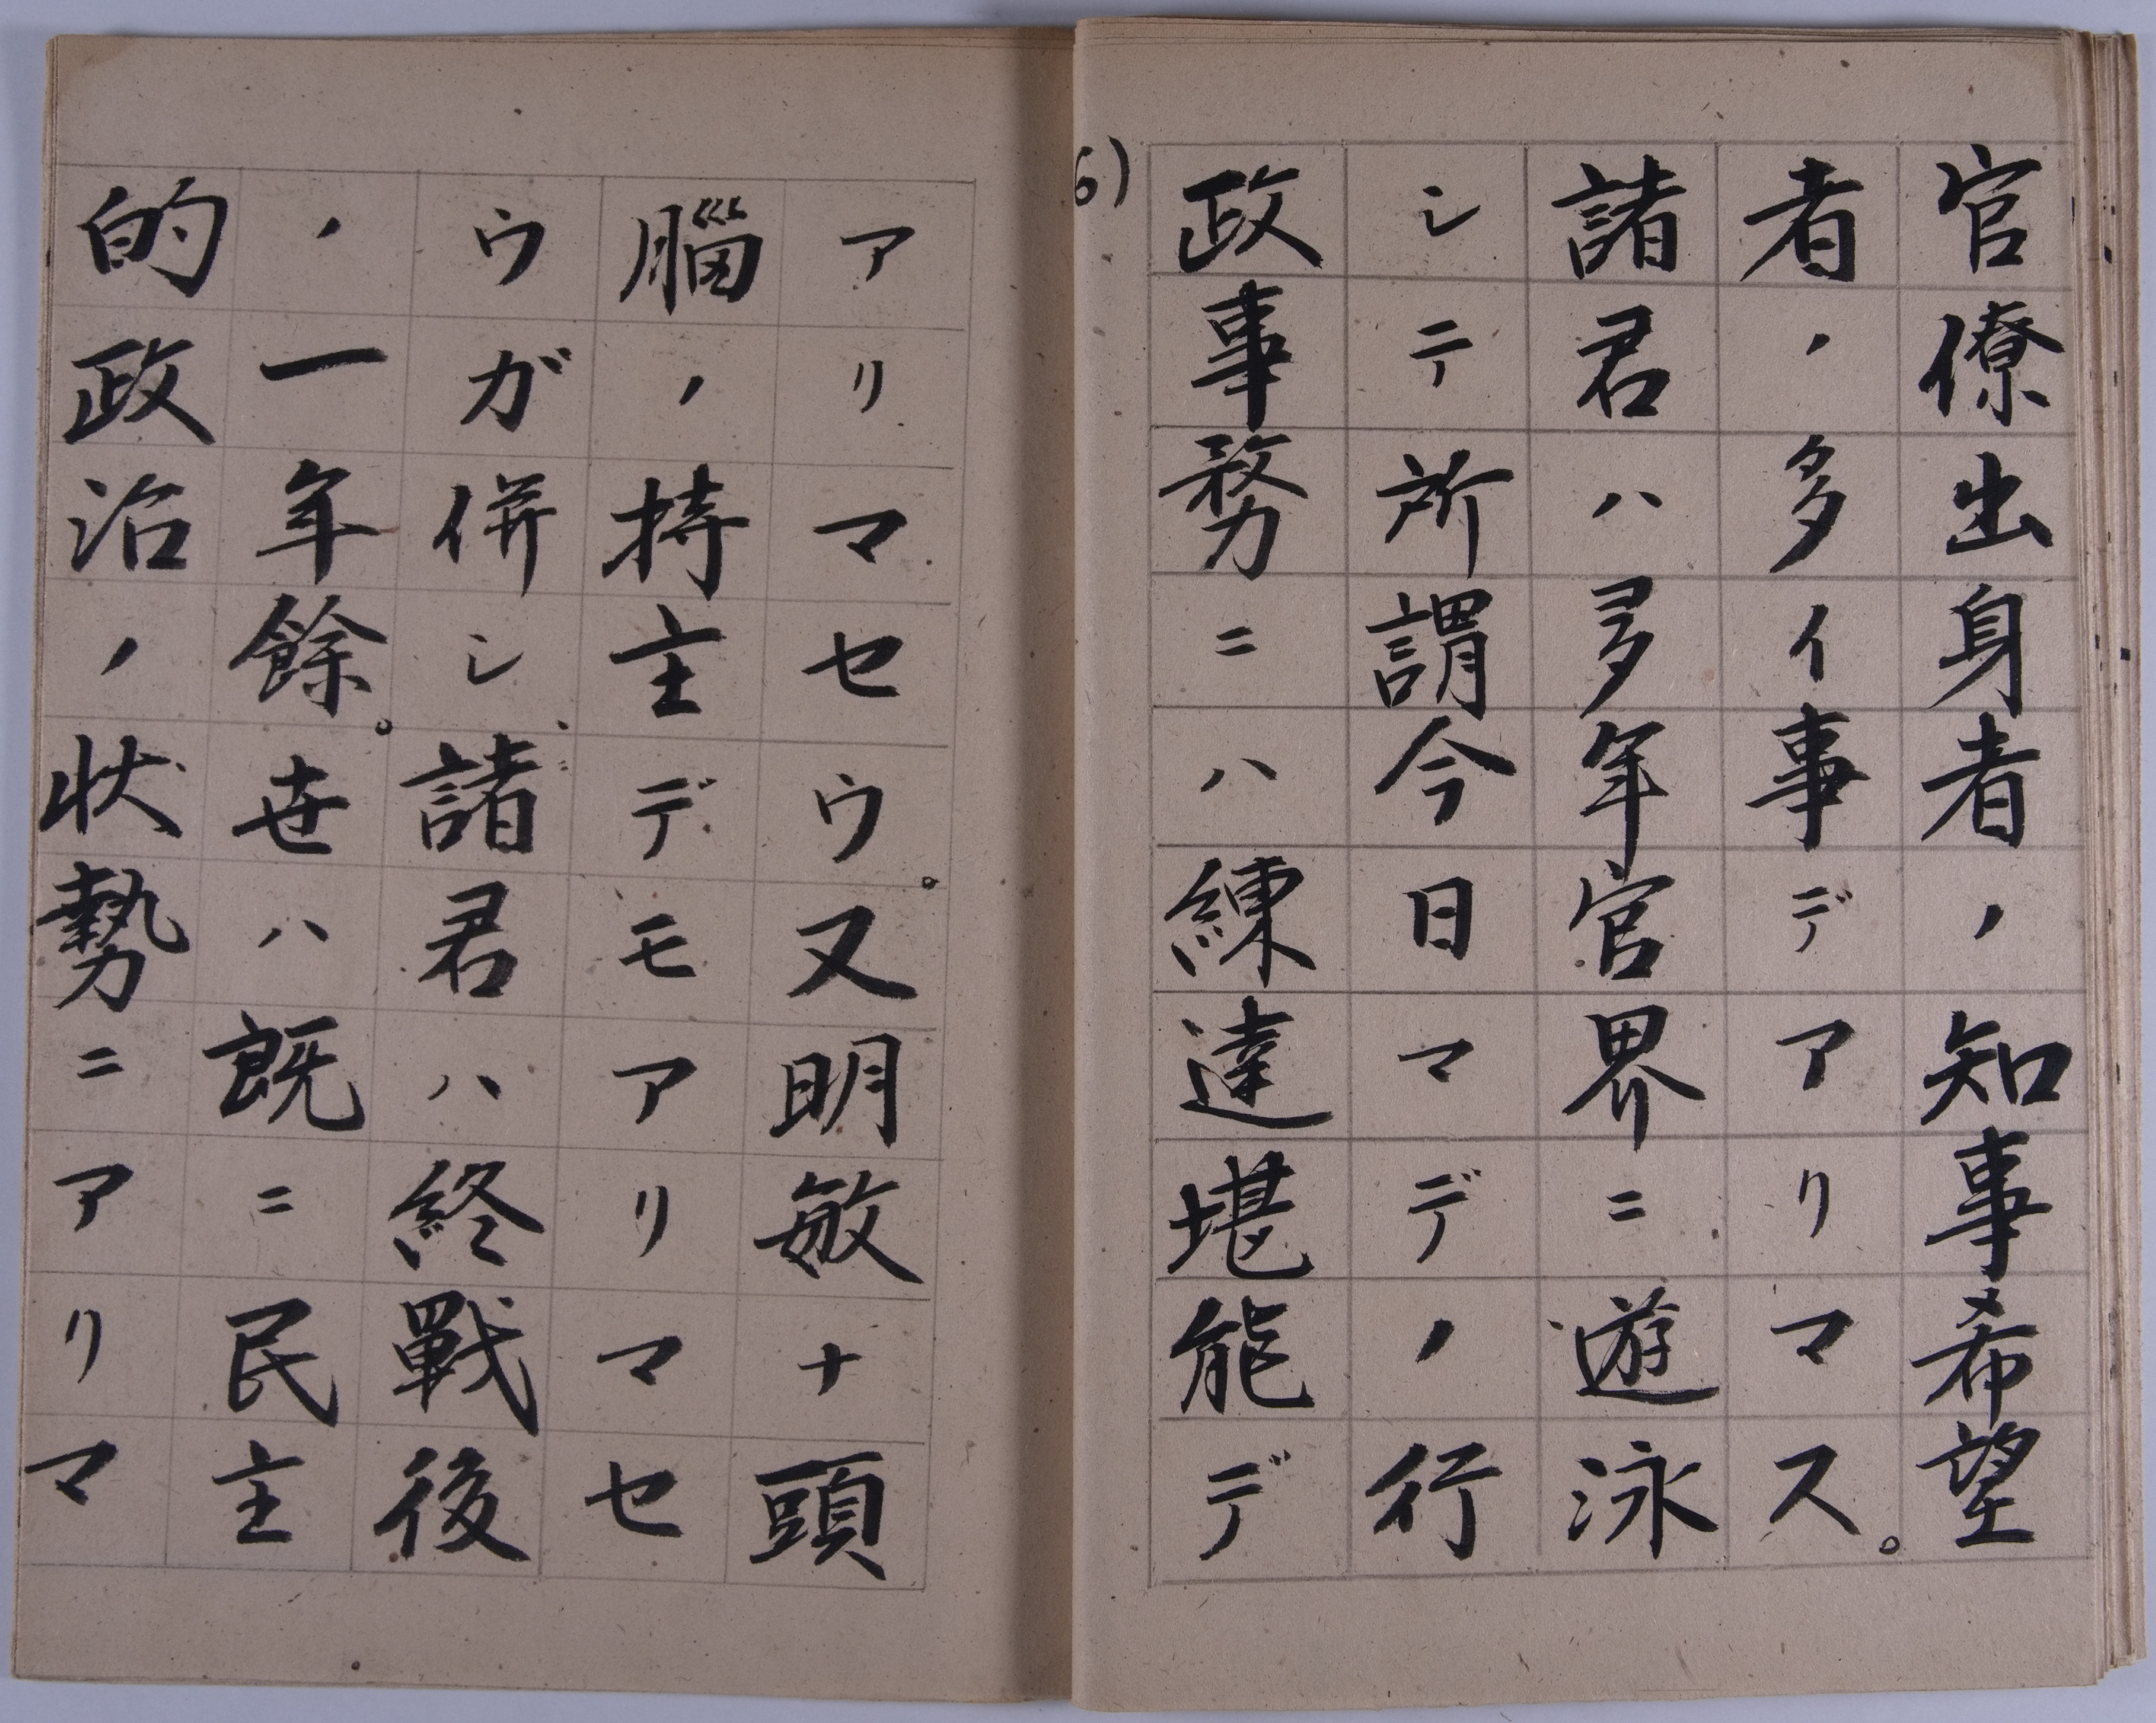 官僚出身者ノ知事希望
者ノ多イ事デアリマス。
諸君ハ多年官界ニ遊泳
シテ所謂今日マデノ行
政事務ニハ練達堪能デ
6)
アリマセウ。又明敏ナ頭
腦ノ持主デモアリマセ
ウガ併シ諸君ハ終戰後
ノ一年餘。世ハ既ニ民主
的政治ノ状勢ニアリマ